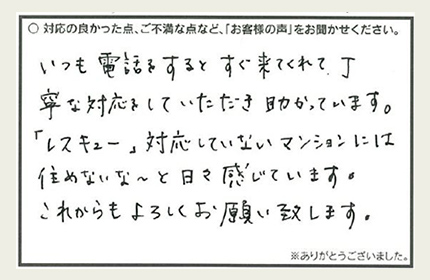 ○ 対応の良かった点、ご不満な点など、「お客様の声」をお聞かせください。
いつも電話をするとすぐ来てくれて、丁
寧な対応をしていただき助かっています。
「レスキュー」対応していないマンションには
住めないな～と日々感じています。
これからもよろしくお願い致します。
※ありがとうございました。